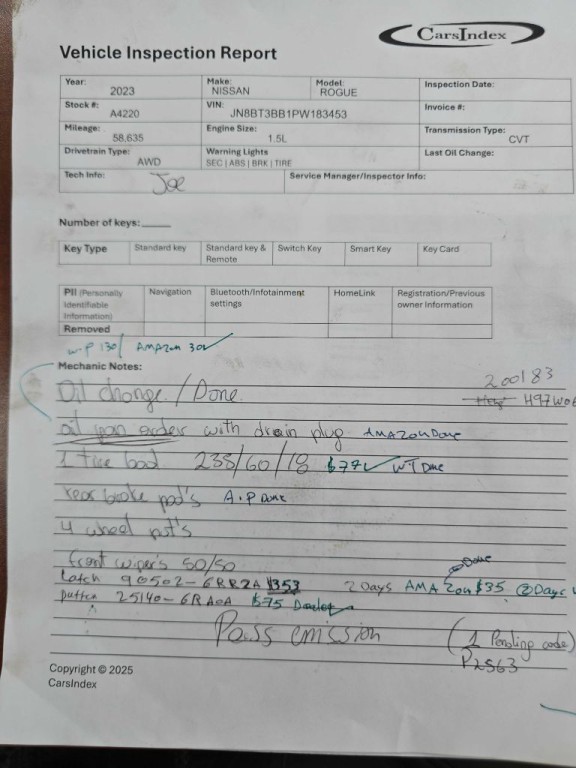 CarsIndex
Vehicle Inspection Report
Year: 2023 Make: NISSAN Model: ROGUE Inspection Date:
Stock #: A4220 VIN: JN8BT3BB1PW183453 Invoice #:
Mileage: 58,635 Engine Size: 1.5L Transmission Type: CVT
Drivetrain Type: AWD Warning Lights SEC | ABS | BRK | TIRE Last Oil Change:
Tech Info: Joe Service Manager/Inspector Info:
Number of keys:
Key Type Standard key Standard key & Remote Switch Key Smart Key Key Card
PII (Personally Identifiable Information) Navigation Bluetooth/Infotainment settings HomeLink Registration/Previous owner Information
Removed
W.P 130/ AMAZON 30
Mechanic Notes:
200183
Oil change / Done
oil pan order with drain plug AMAZON Done
1 tire bad 235/60/18 $77 WT Done
rear brake pad's A.P Done
4 wheel nut's
front wiper's 50/50
Done
Latch 90502-6RR2A $353 2 Days AMAZON $35 2 Days
button 25140-6RA0A $75
Pass emission (1 Pending code)
P2563
Copyright © 2025
CarsIndex